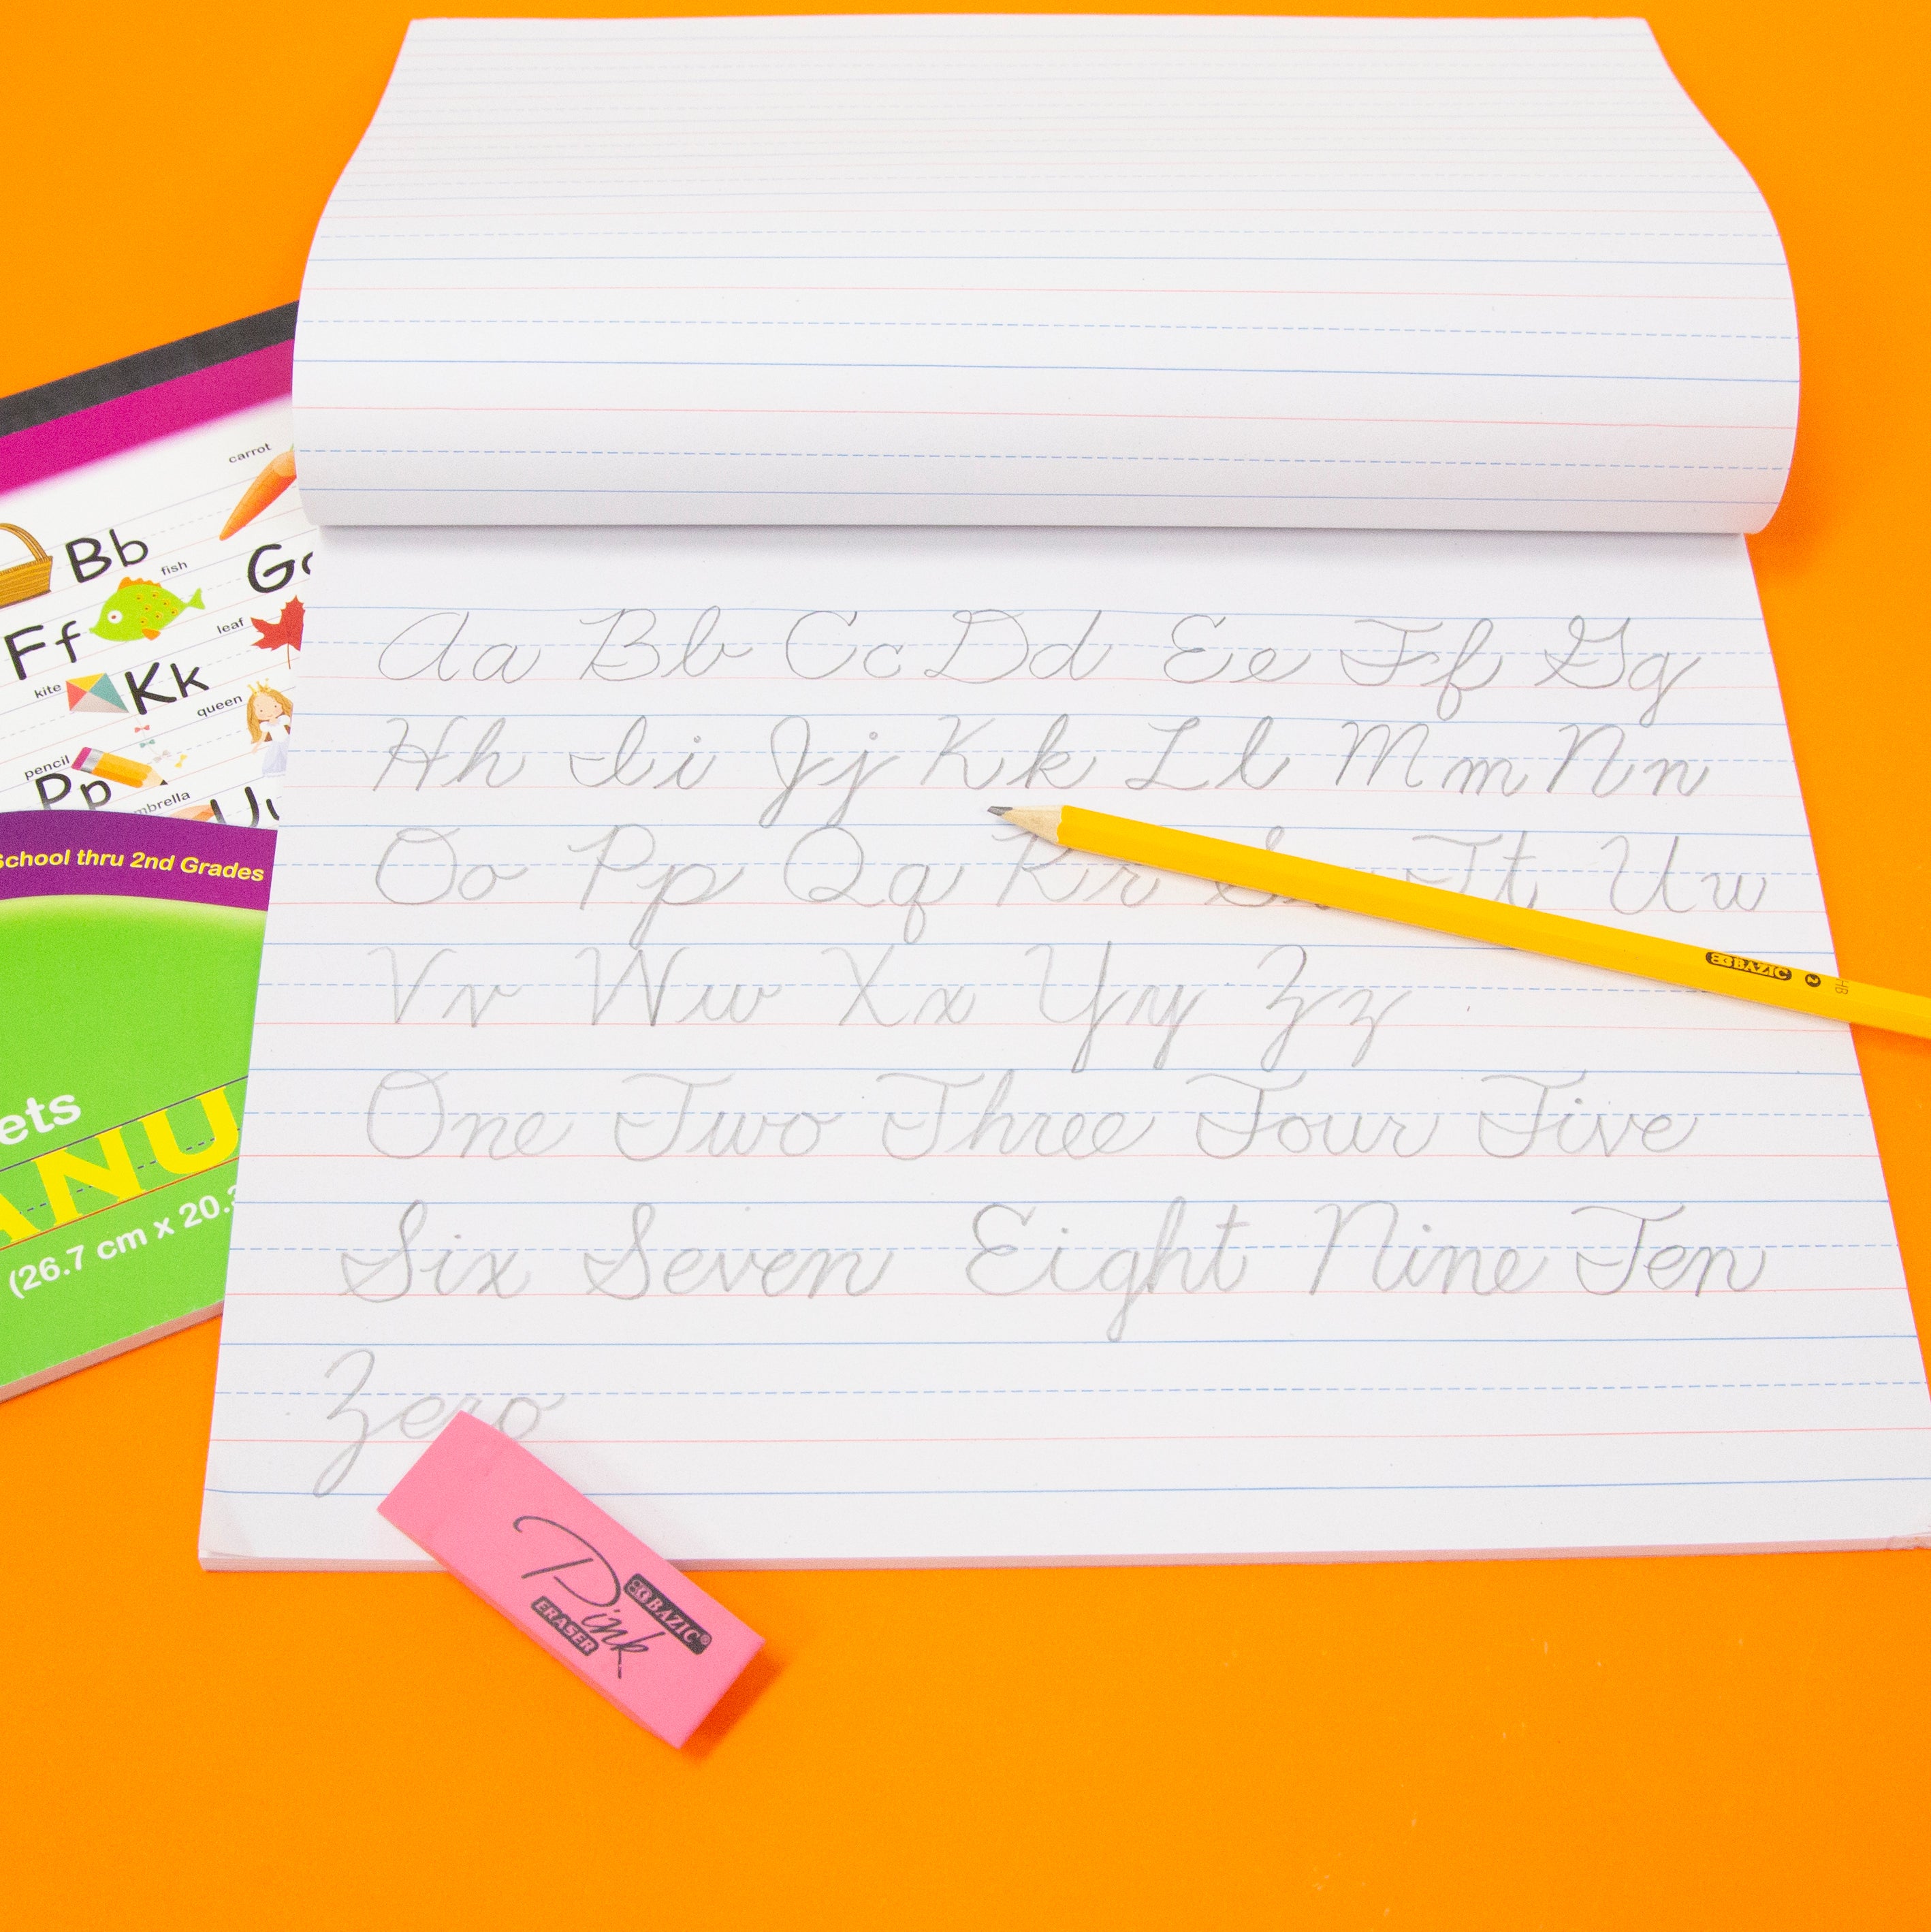 carrot
Bb
fish
Ff
leaf
kite
Kk
queen
pencil
Pp
School thru 2nd Grades
(26.7 cm x 20.3
Aa Bb Cc Dd Ee Ff Gg
Hh Ii Jj Kk Ll Mm Nn
Oo Pp Qq Rr Ss Tt Uu
Vv Ww Xx Yy Zz
One Two Three Four Five
Six Seven Eight Nine Ten
Zero
BAZIC 2 HB
BAZIC®
Pink
ERASER